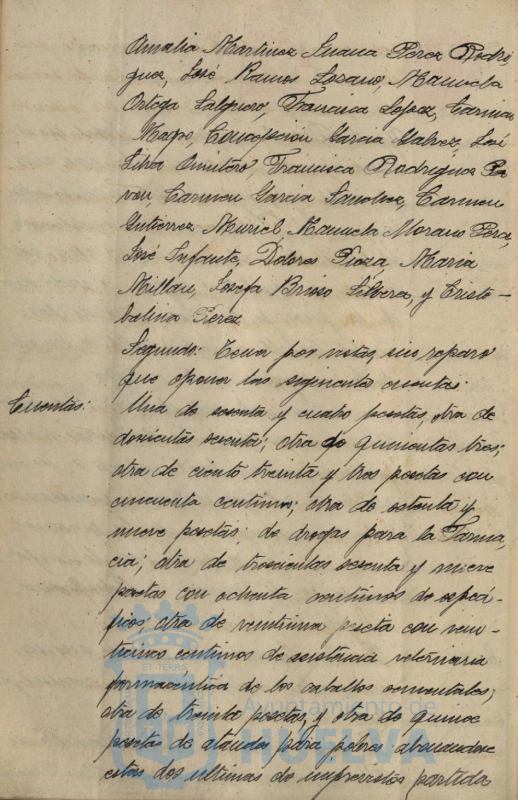 Amalia Martinez Juana Perez Rodri
guez, José Ramos Lozano, Manuela
Ortega Salguero, Francisca Lopez, Carmen
Mayo, Concepcion Garcia Galvez, José
Silva Francisca Rodriguez Pa
von, Carmen Garcia Sanchez, Carmen
Gutierrez Muriel, Manuela Morano Perez,
José Infante, Dolores Maria
Millan, Josefa Brioso Silvera, y Cristo-
balina Perez
Segundo: Tener por vistas, sin reparo
que oponer las siguientes cuentas:
Cuentas:
Una de sesenta y cuatro pesetas, otra de
doscientas sesenta; otra de quinientas tres;
otra de ciento treinta y tres pesetas con
cincuenta centimos; otra de setenta y
nueve pesetas; de drogas para la Farma,
cia; otra de trescientas sesenta y nueve
pesetas con ochenta centimos de especi-
ficos; otra de veintiuna peseta con vein-
ticinco centimos de asistencia veterinaria
farmaceutica de los caballos sementales;
otra de treinta pesetas, y otra de quince
pesetas de ataudes para pobres abonandose
estas dos ultimas de imprevistos partida
ET TERRA
Ayuntamiento de
HUELVA